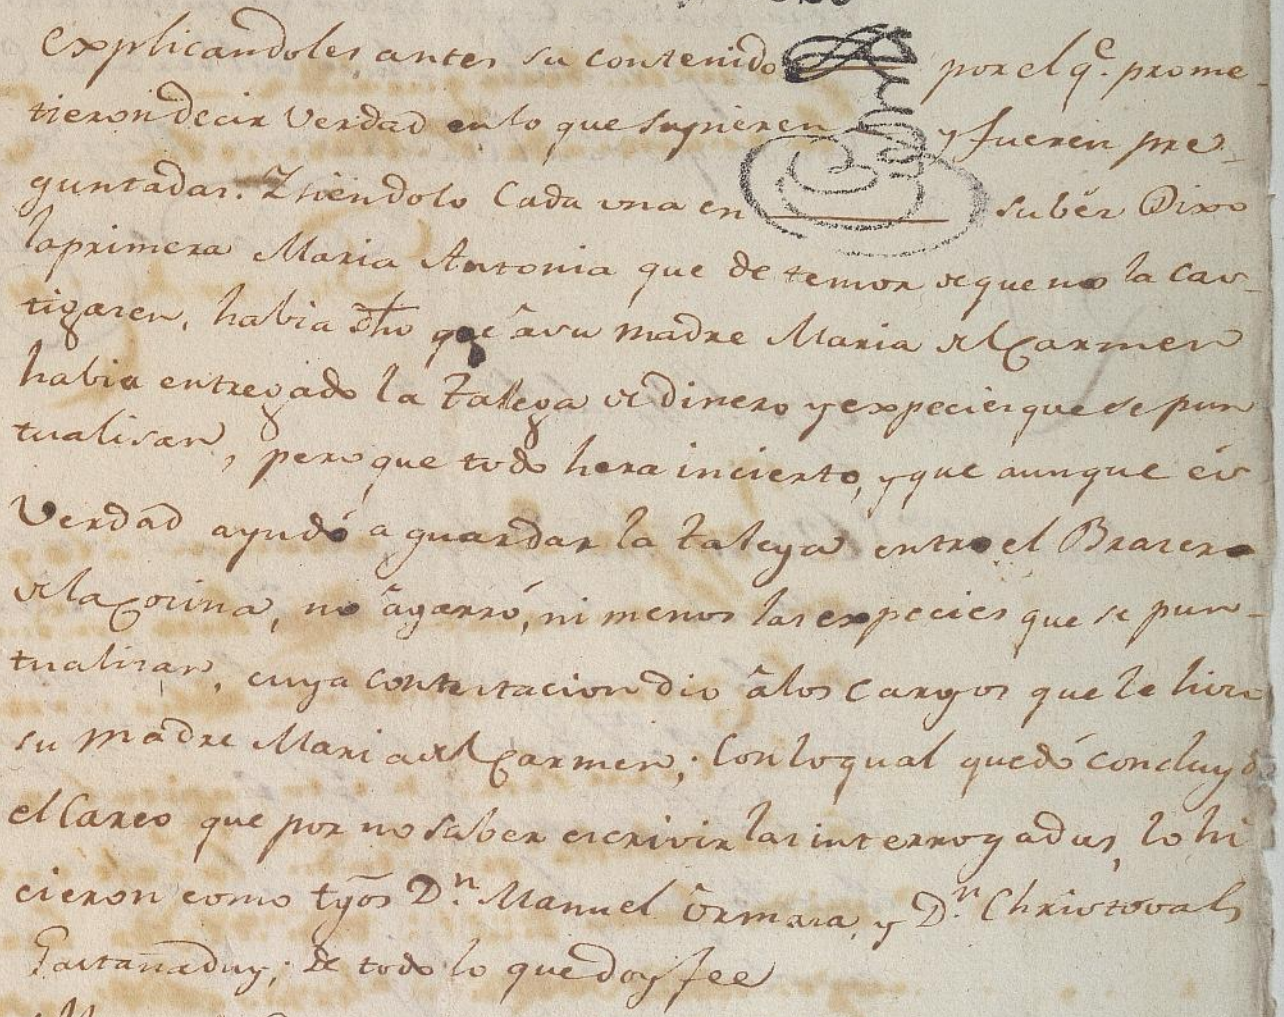 explicandoles antes su contenido por el qe. prome-
tieron decir Verdad en lo que supieren y fueren pre-
guntadas. Ysiendolo Cada una en su bes Dixo
la primera Maria Antonia que de temor de que no la cas-
tigasen, habia dho que â su madre Maria del Carmen
habia entregado la Tallega de dinero y expecies que se pun
tualisan, pero que todo hera incierto, y que aunque es
Verdad ayudó a guardar la Talega entre el Brasero
de la Cocina, no âgarró, ni menos las expecies que se pun-
tualisan, cuya contestacion dio â los cargos que le hizo
su madre Maria del Carmen; Con lo qual quedó concluydo
el Careo que por no saber escrivir las interrogadas, lo hi
cieron como tgos Dn. Manuel y Dn. Christoval
Gastañaduy; de todo lo que doy fee